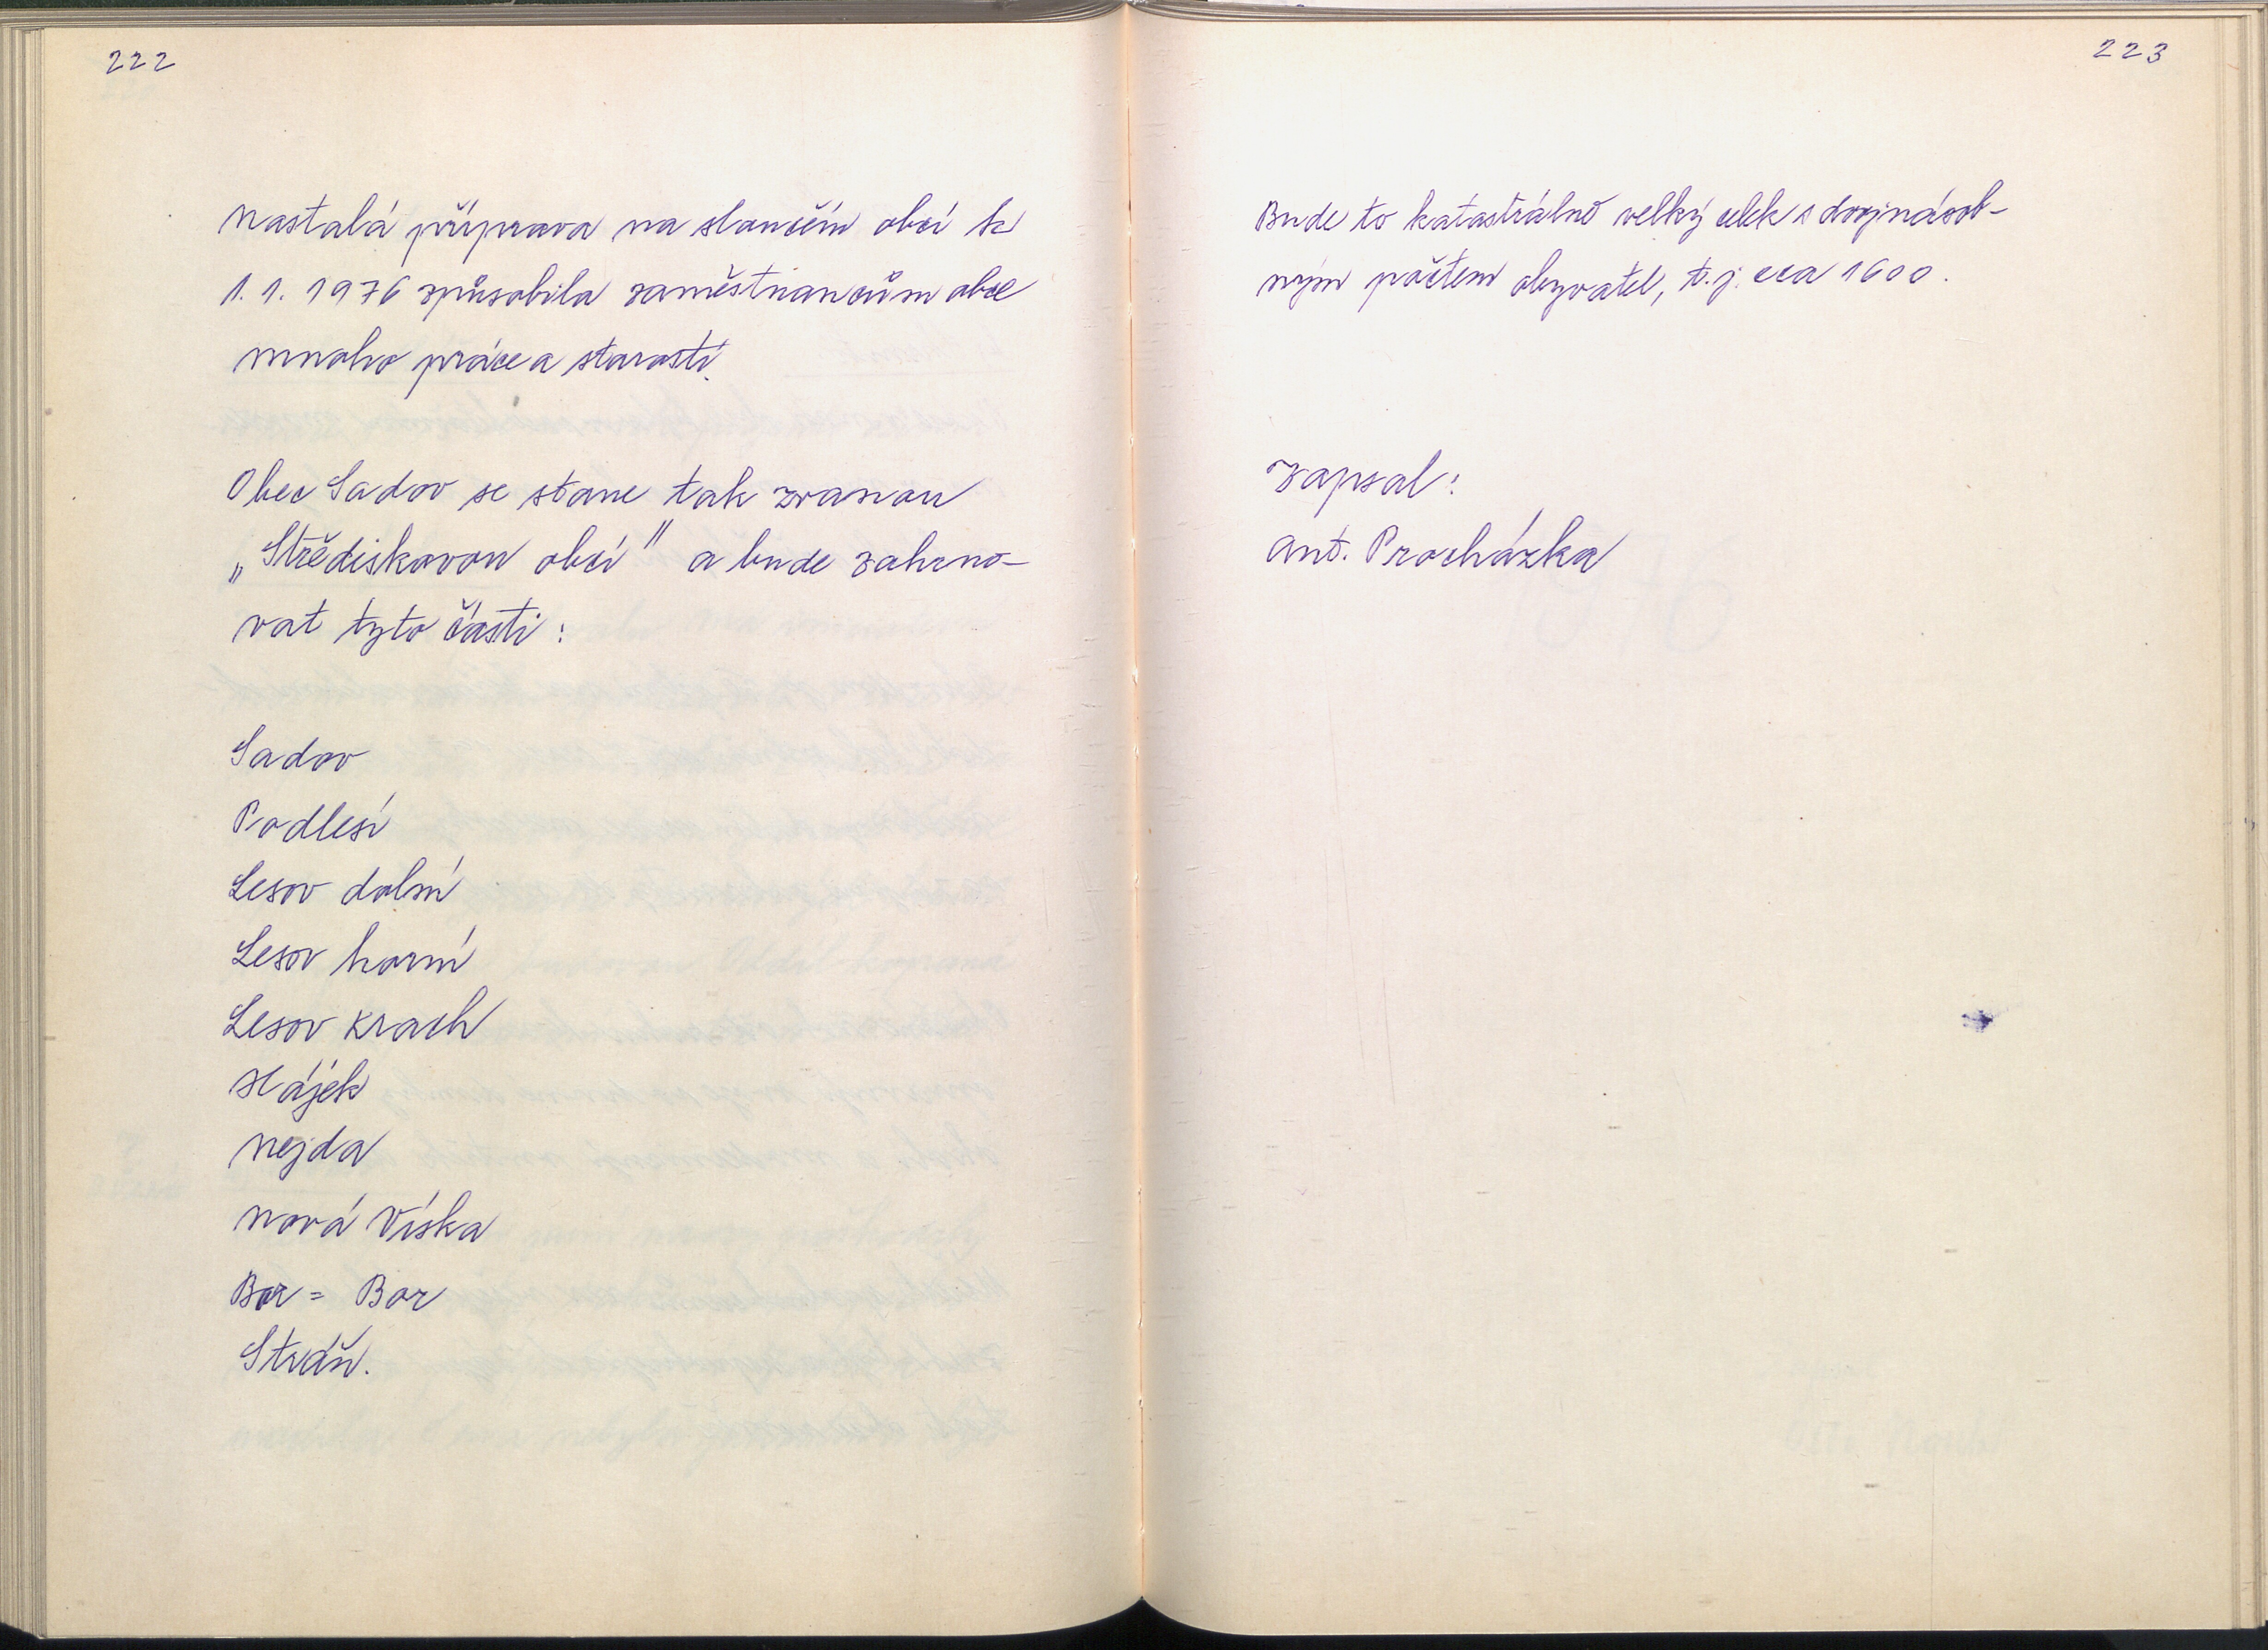 222
Nastalá příprava na sloučení obcí k
1. 1. 1976 způsobila zaměstnancům obce
mnoho práce a starostí.
Obec Sadov se stane tak zvanou
„Střediskovou obcí" a bude zahrno-
vat tyto části:
Sadov
Podlesí
Lesov dolní
Lesov horní
Lesov Krach
Hájek
Nejda
Nová Víska
Bor = Bor
Stráň.
223
Bude to katastrálně velký celek s dvojnásob-
ným počtem obyvatel, t. j. cca 1600.
Zapsal:
Ant. Procházka